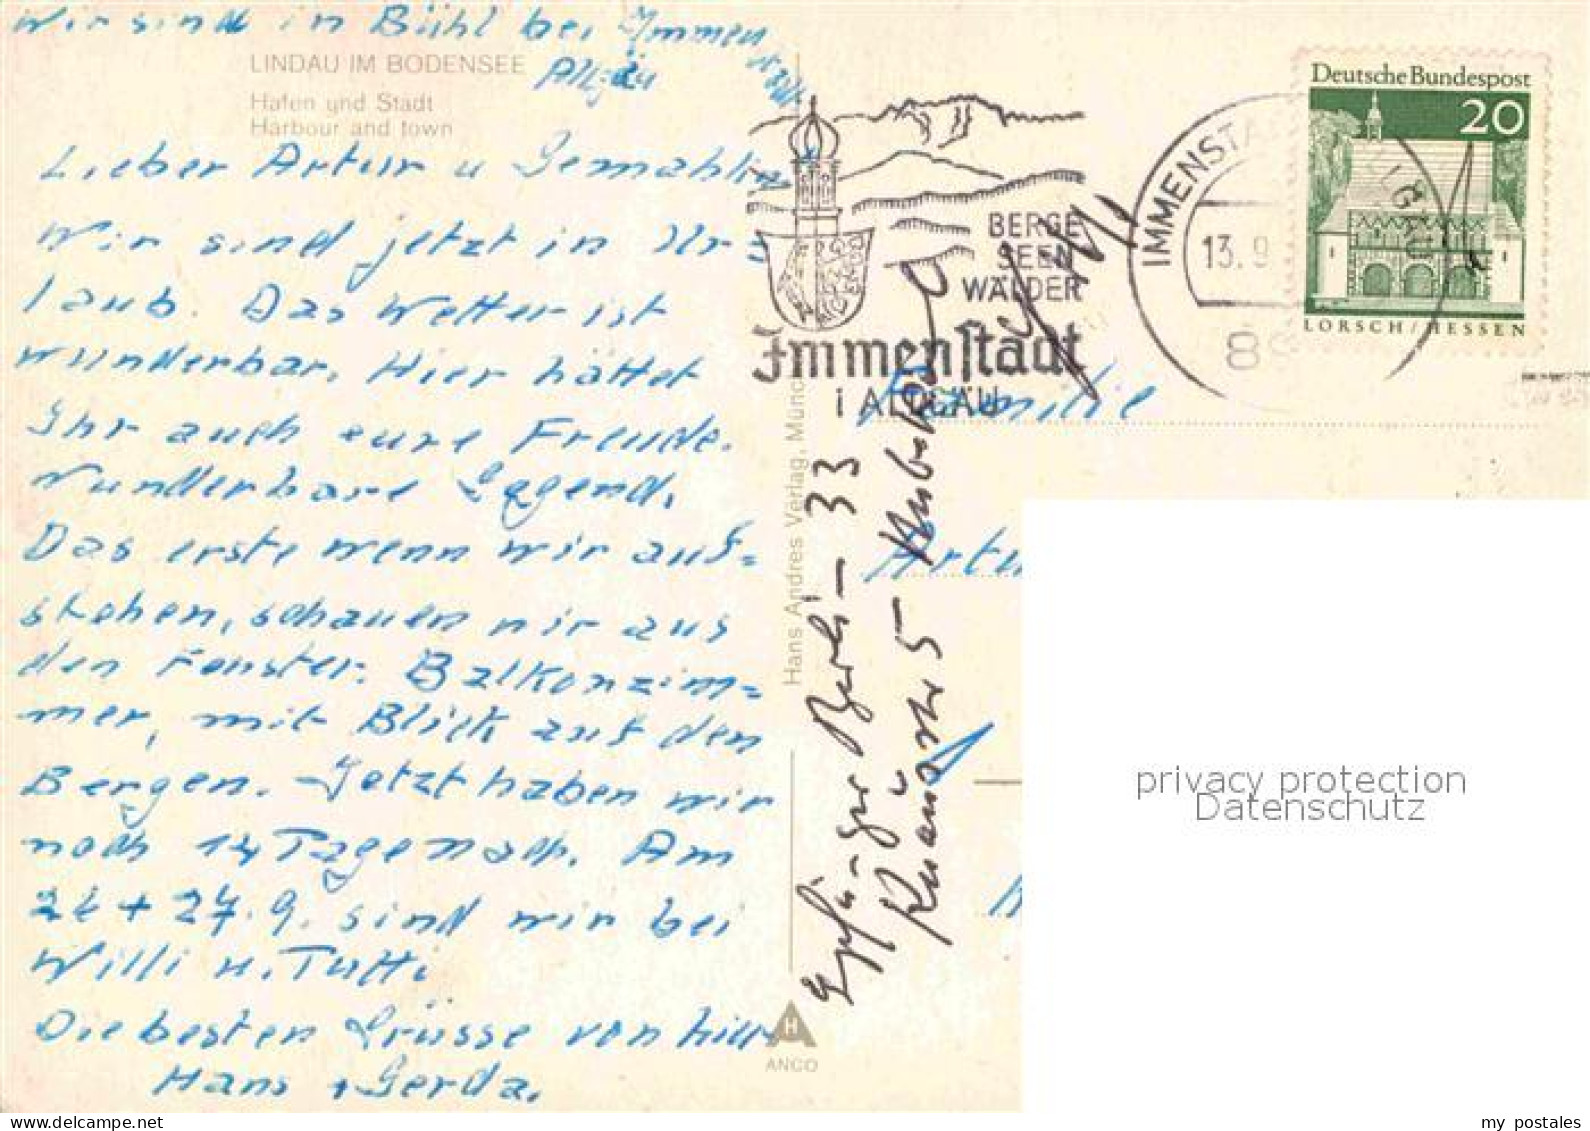 Wir sind in Bühl bei Immen
stadt
Allgäu
LINDAU IM BODENSEE
Hafen und Stadt
Harbour and town
Lieber Artur u Gemahlin
Wir sind jetzt in Ur=
laub. Das Wetter ist
wunderbar. Hier hättet
Ihr auch eure Freude.
Wunderbare Gegend.
Das erste wenn wir auf=
stehen, schauen wir aus
den Fenster. Balkonzim=
mer, mit Blick auf den
Bergen. Jetzt haben wir
noch 14 Tage nach. Am
26 + 27. 9. sind wir bei
Willi u. Tutti
Die besten Grüsse von
Hans + Gerda.
Hans Andres Verlag, Münc
H
ANCO
BERGE
SEEN
WÄLDER
Immenstadt
i ALLGÄU
IMMENSTA
LLGÄU
13. 9
89
Deutsche Bundespost
20
LORSCH/HESSEN
Familie
Artu
Empfänger Berlin - 33
5
privacy protection
Datenschutz
my postales